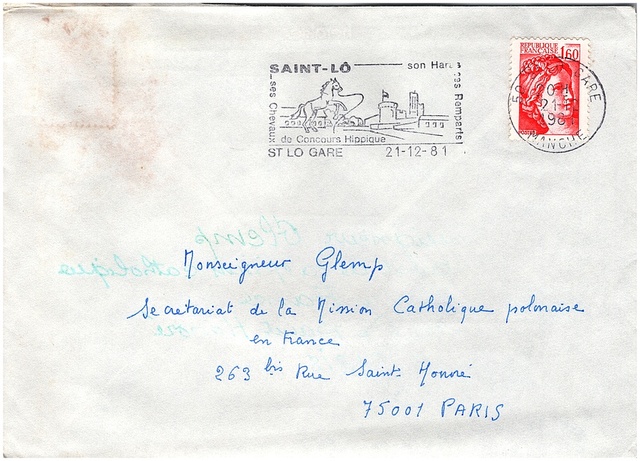 SAINT-LÔ son Haras
ses Chevaux
ses Remparts
de Concours Hippique
ST LO GARE 21-12-81
REPUBLIQUE
FRANÇAISE 1,60
GARE
21-12
MANCHE
Monseigneur Glemp
Secretariat de la Mission Catholique polonaise
en France
263 bis Rue Saint-Honoré
75001 PARIS